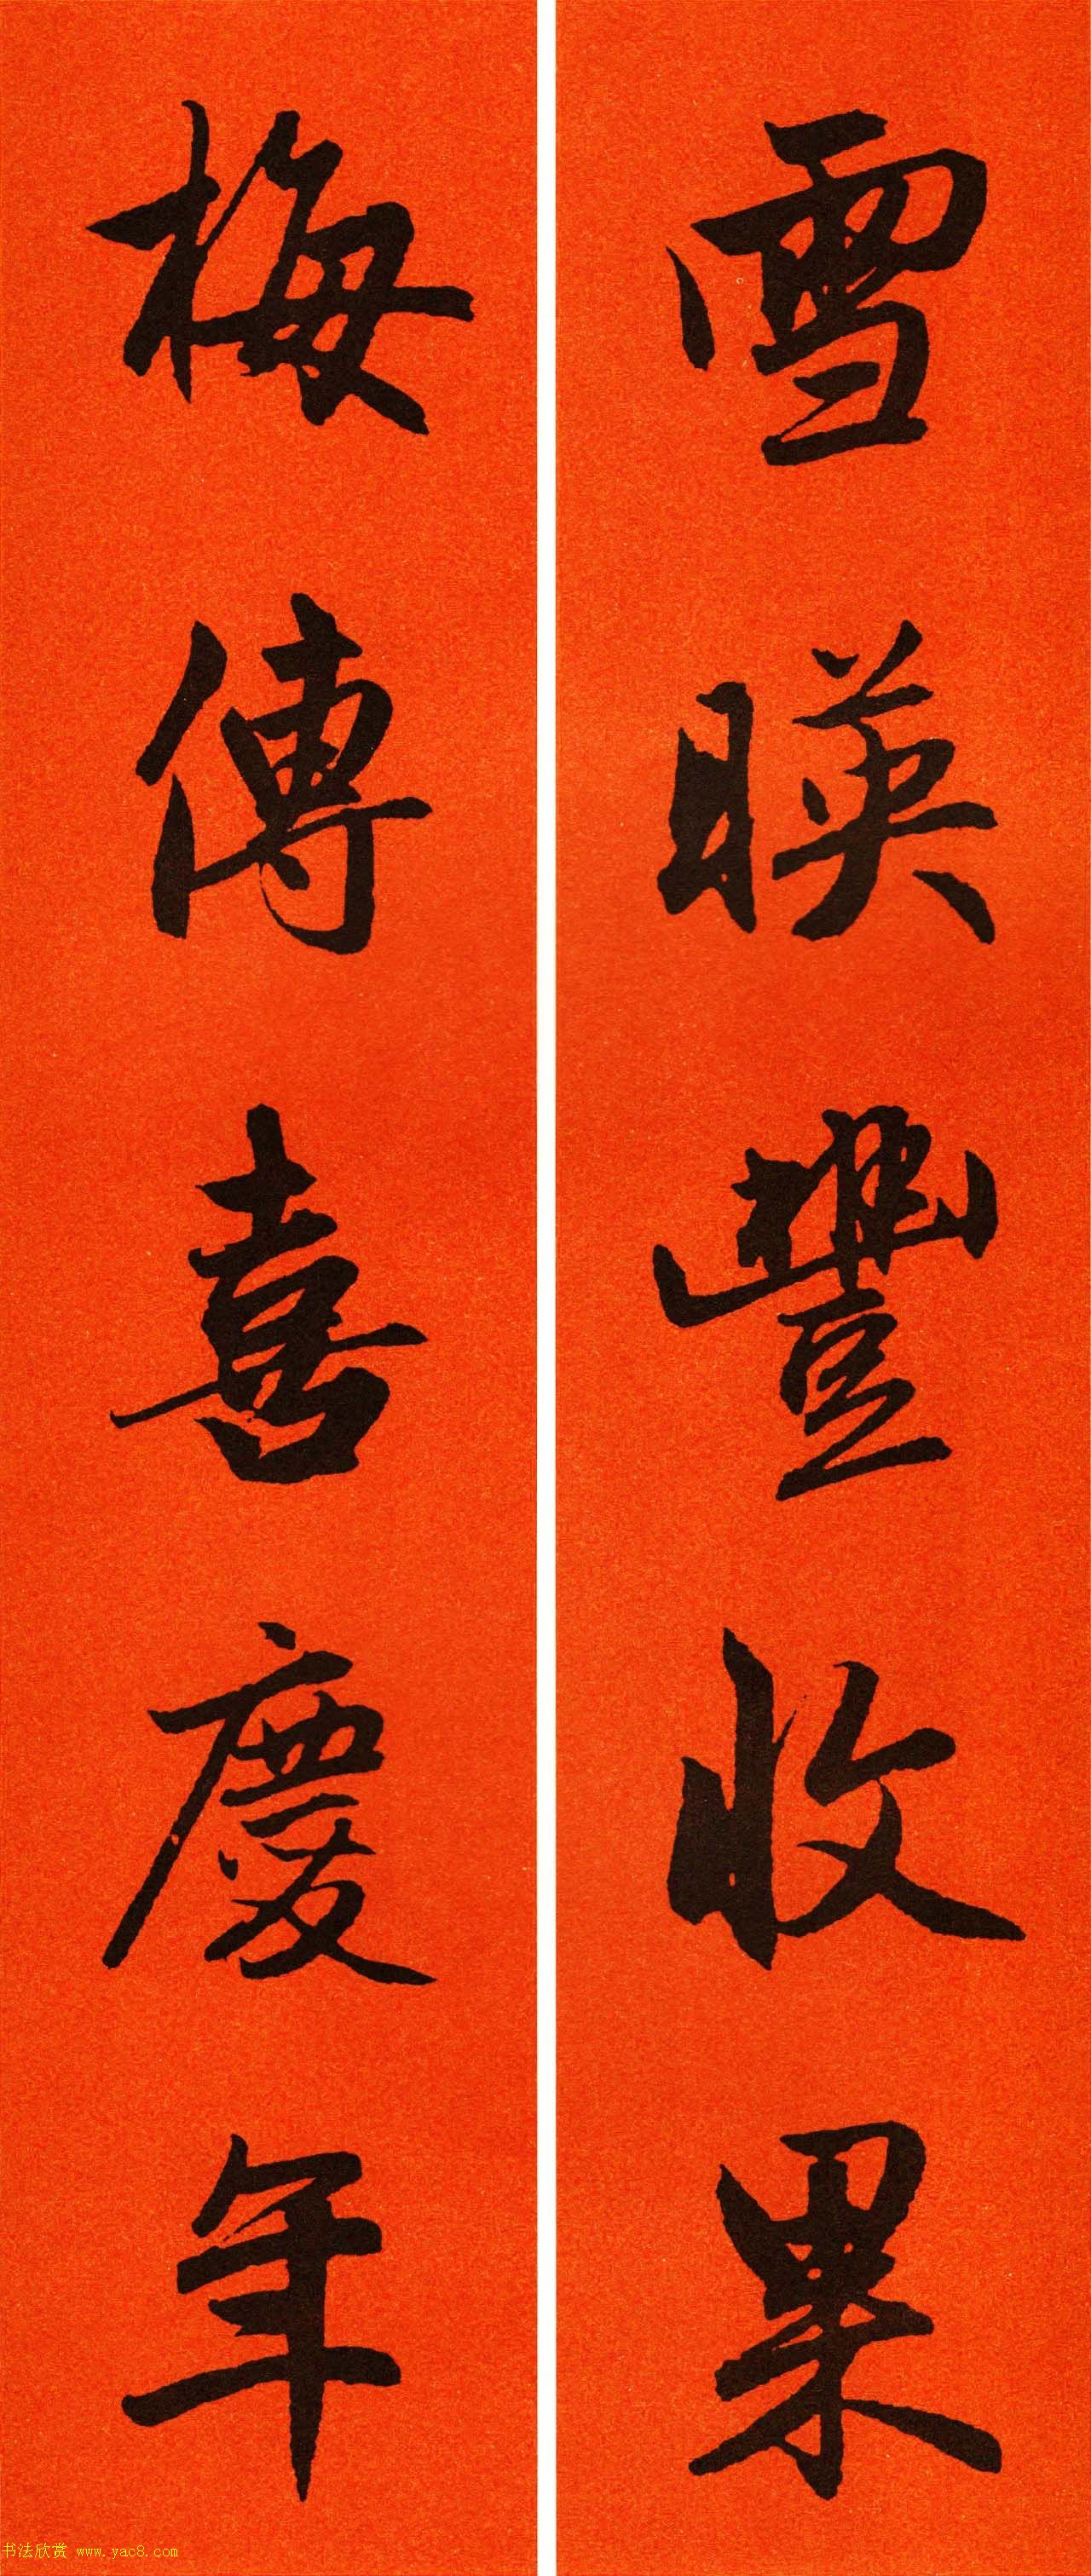 雪暎豐收果
梅傳喜慶年
书法欣赏 www.yac8.com